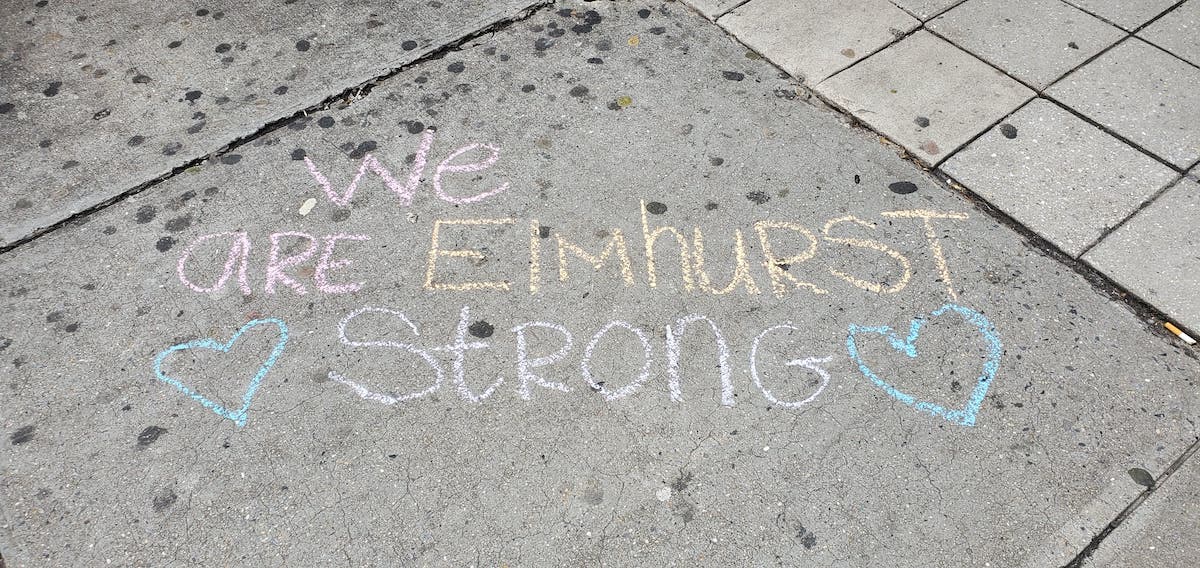 We
are Elmhurst
Strong